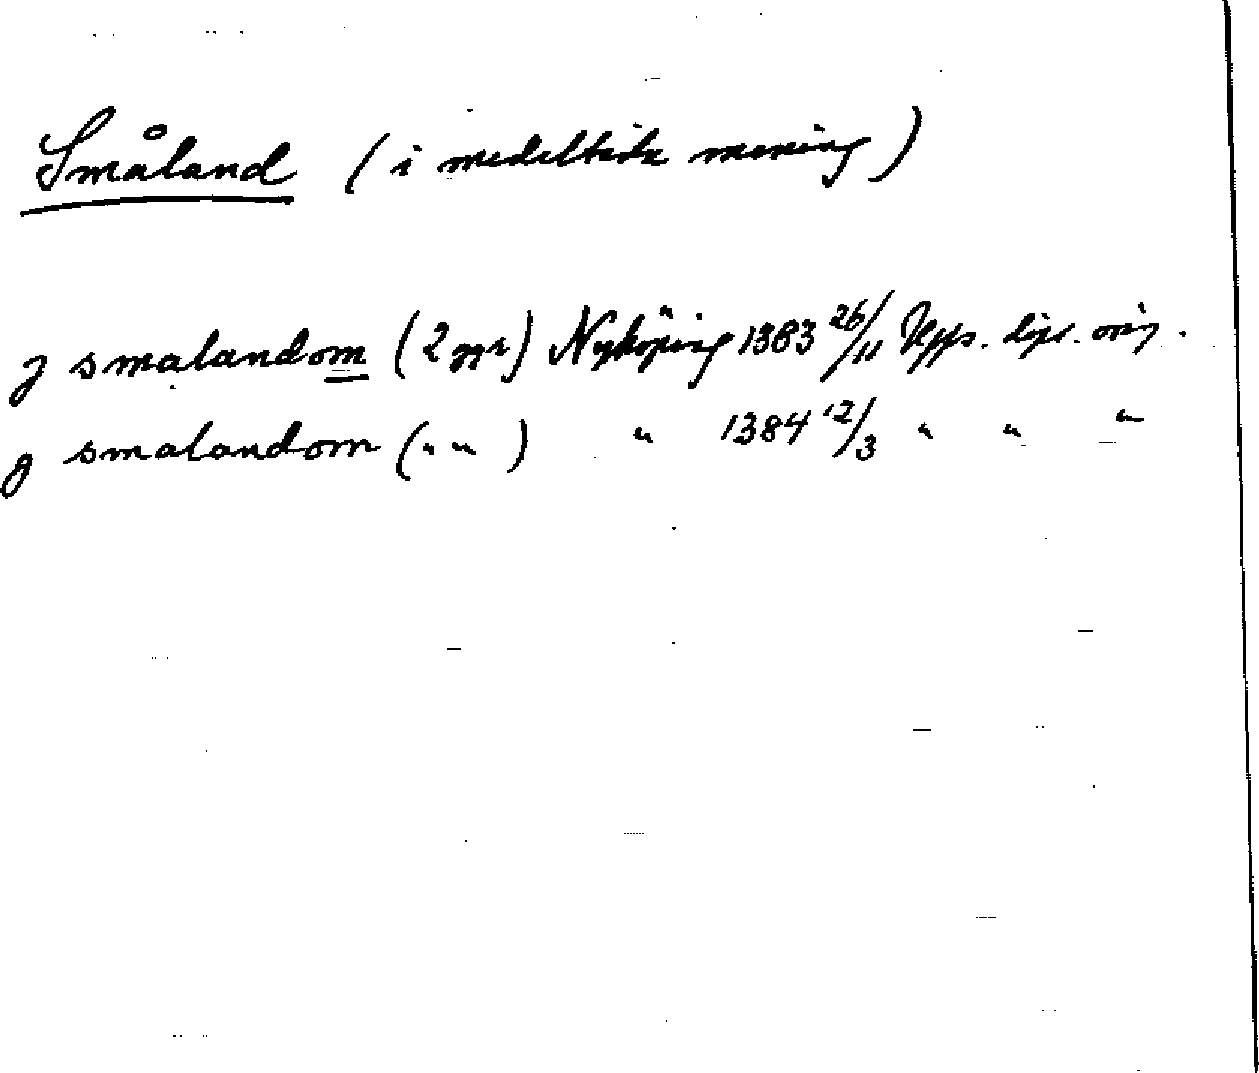 Småland (i medeltida mening)
j smalandom (2 ggr) Nyköping 1383 26/11 Upps. dipl. orig.
j smalandom („ „) „ 1384 12/3 „ „ „